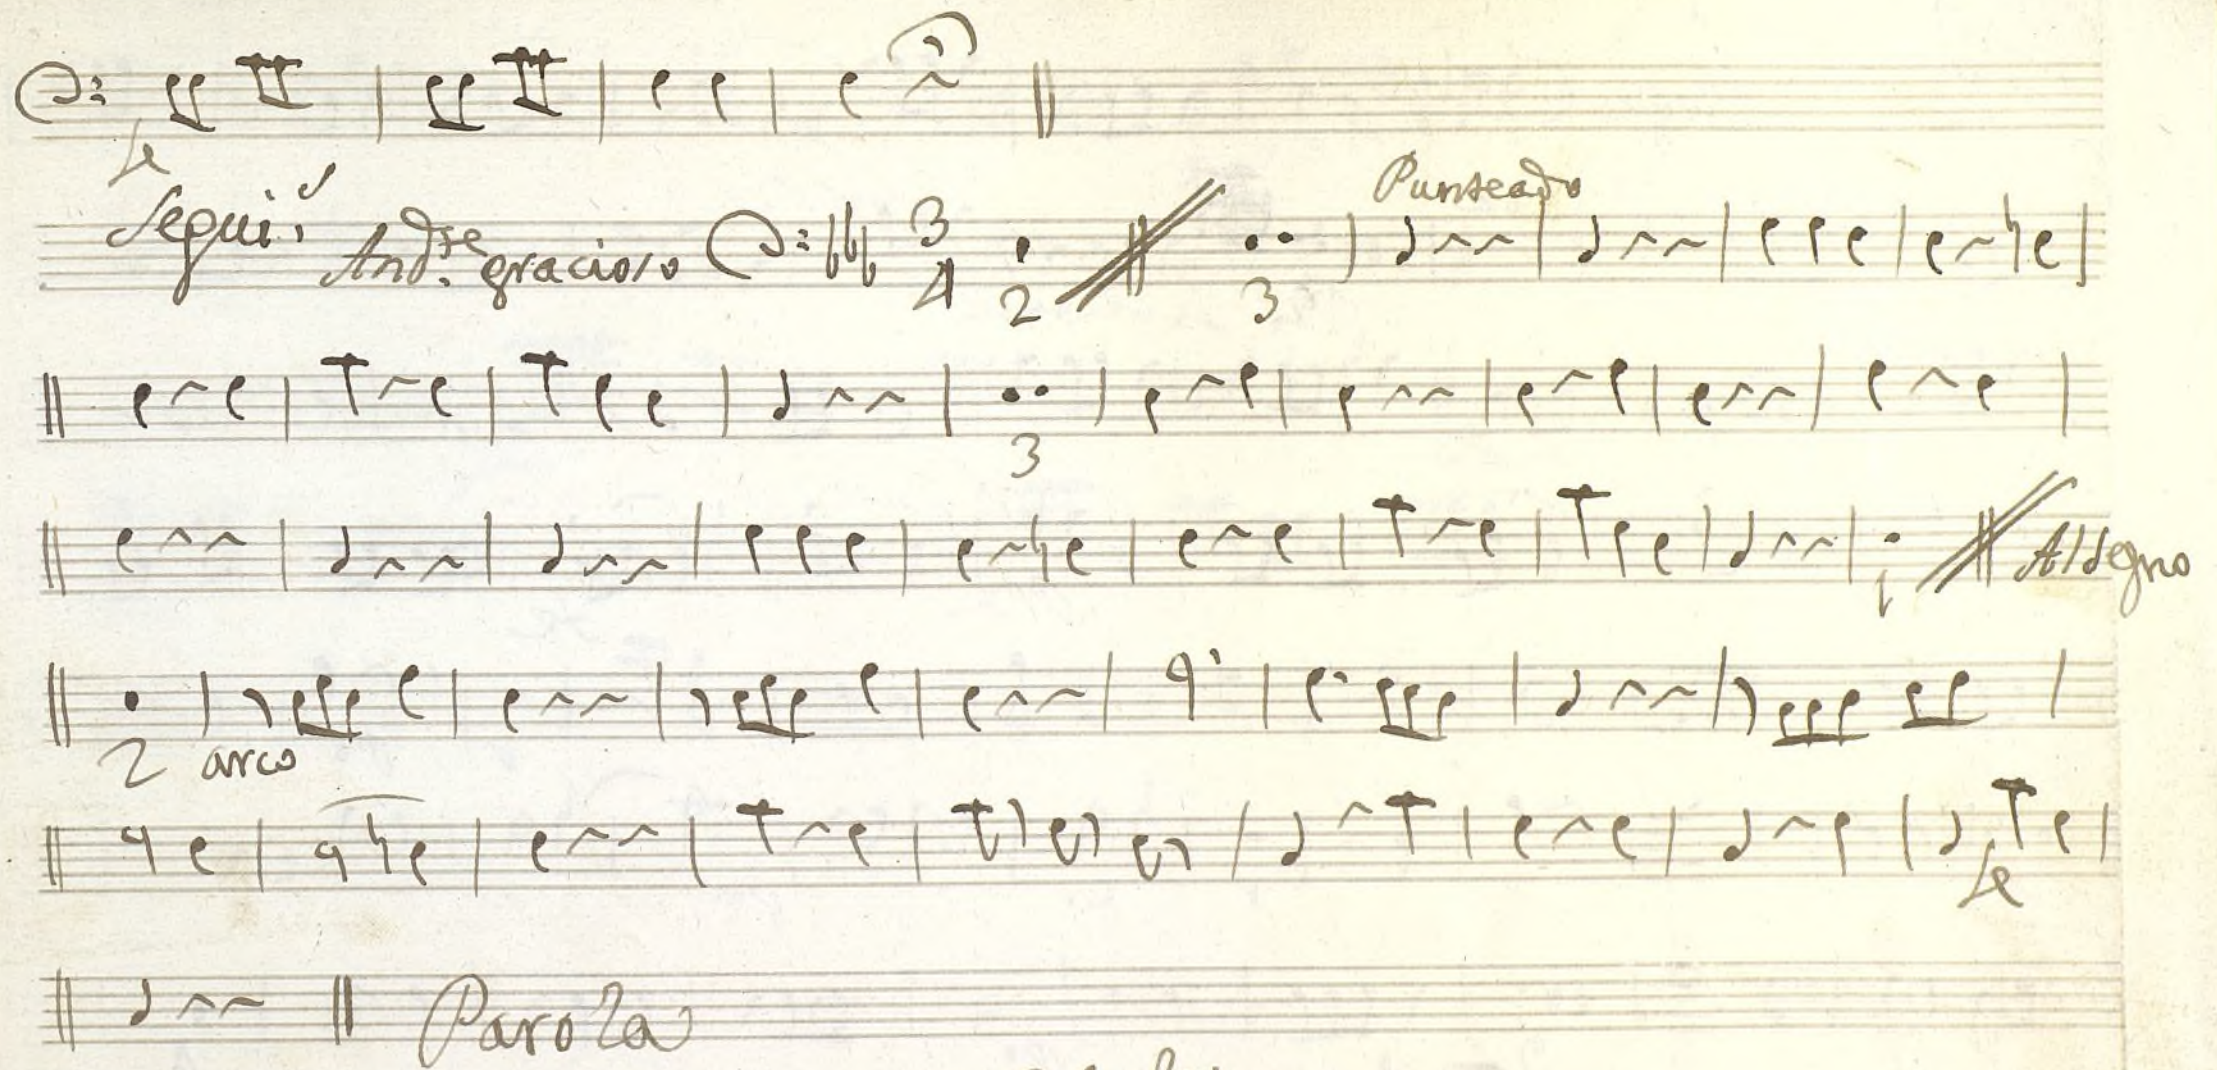 fe
Segui.s And.te gracioso 3 4 2 3 Punteado
3
1 Al Segno
2 arco
fe
Parola